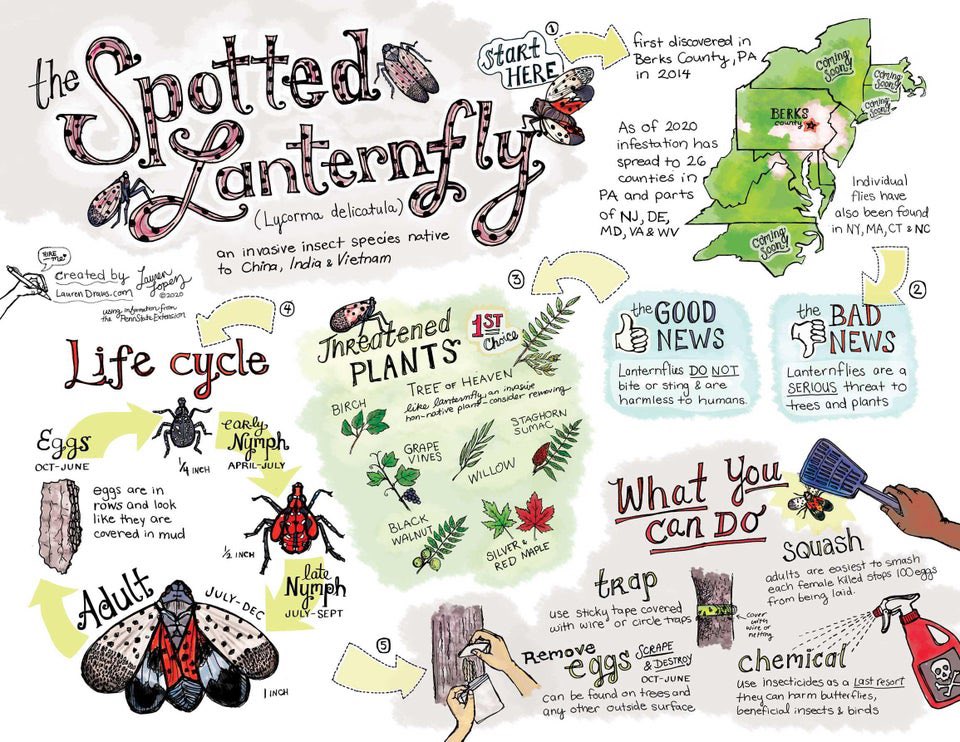 the Spotted
Lanternfly
(Lycorma delicatula)
an invasive insect species native
to China, India & Vietnam
BIRE me!
created by Lauren Lopez
LaurenDraws.com ©2020
using information from
the PennState Extension
①
START
HERE
first discovered in
Berks County, PA
in 2014
As of 2020
infestation has
spread to 26
counties in
PA and parts
of NJ, DE,
MD, VA & WV
coming
soon!
coming
soon!
coming
soon!
BERKS
county
coming
soon!
Individual
flies have
also been found
in NY, MA, CT & NC
②
the BAD
NEWS
Lanternflies are a
SERIOUS threat to
trees and plants
the GOOD
NEWS
Lanternflies DO NOT
bite or sting & are
harmless to humans.
③
Threatened
PLANTS
1ST
Choice
TREE OF HEAVEN
like lanternfly, an invasive
non-native plant - consider removing
BIRCH
GRAPE
VINES
WILLOW
STAGHORN
SUMAC
BLACK
WALNUT
SILVER &
RED MAPLE
④
Life cycle
Eggs
OCT-JUNE
eggs are in
rows and look
like they are
covered in mud
1/4 INCH
early
Nymph
APRIL-JULY
1/2 INCH
late
Nymph
JULY-SEPT
Adult
JULY-DEC
1 INCH
⑤
What You
can DO
squash
adults are easiest to smash
each female killed stops 100 eggs
from being laid.
trap
use sticky tape covered
with wire or circle traps
cover
with
wire or
netting
Remove
eggs
SCRAPE
& DESTROY
OCT-JUNE
can be found on trees and
any other outside surface
chemical
use insecticides as a Last resort
they can harm butterflies,
beneficial insects & birds